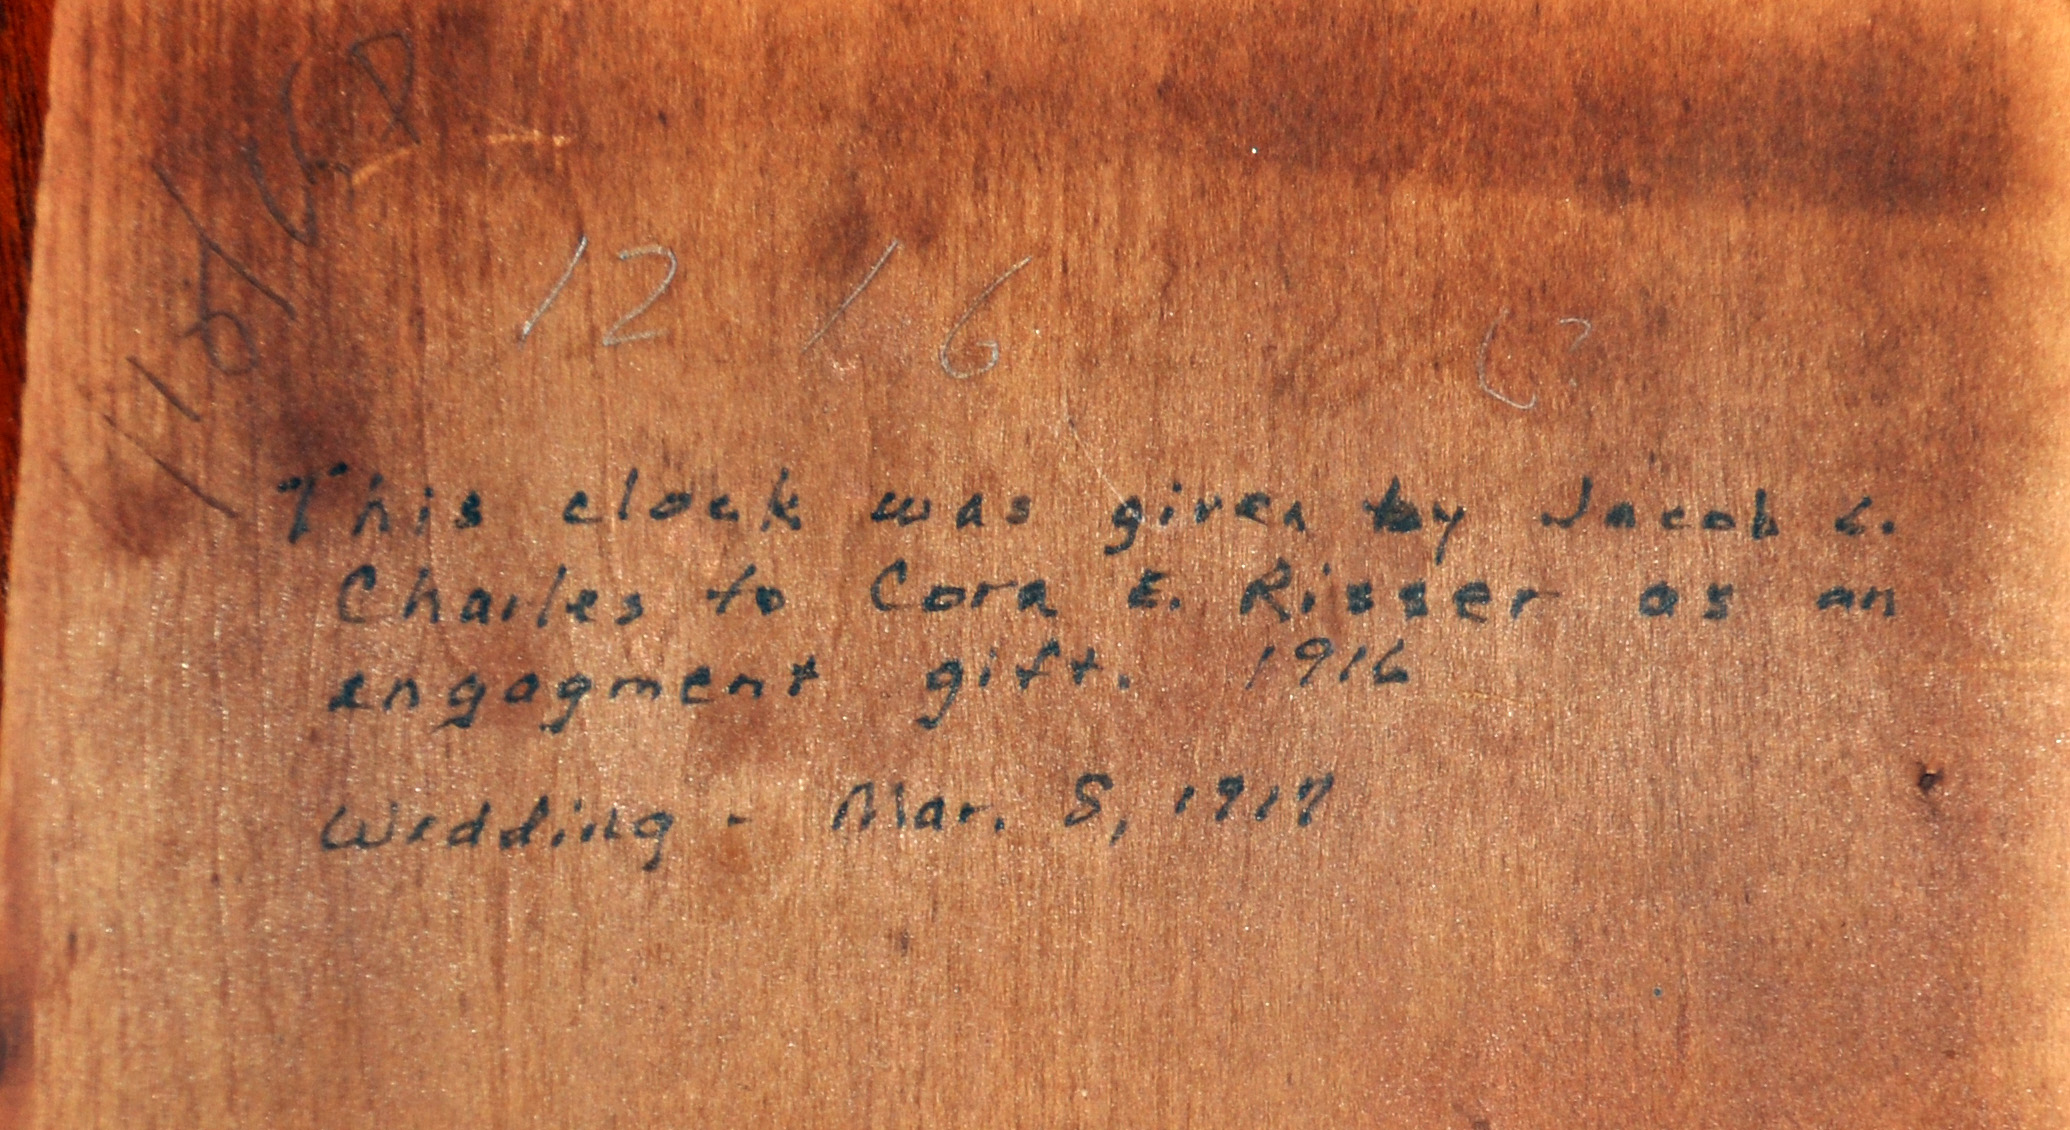 12 16
This clock was given by Jacob C.
Charles to Cora E. Risser as an
engagment gift. 1916
Wedding - Mar. 8, 1917